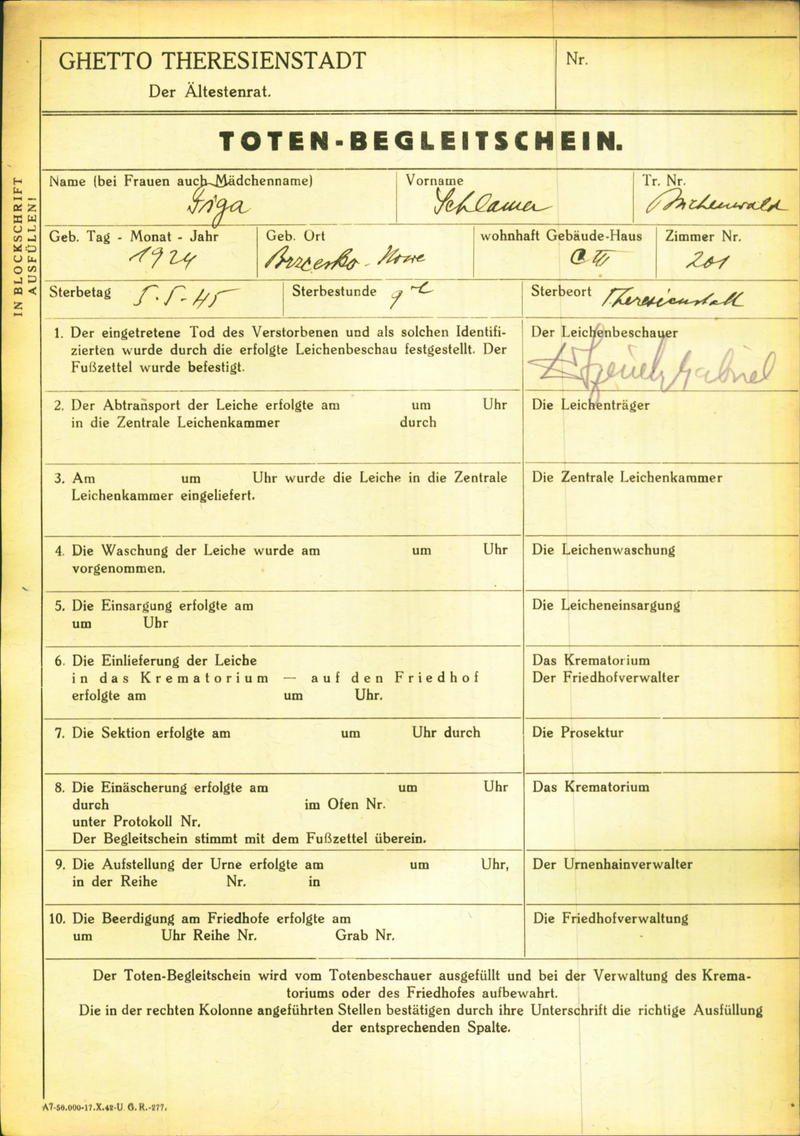 GHETTO THERESIENSTADT
Der Ältestenrat.
Nr.
TOTEN-BEGLEITSCHEIN.
IN BLOCKSCHRIFT
AUSFÜLLEN!
Name (bei Frauen auch Mädchenname)
Giga
Vorname
Schlamer
Tr. Nr.
Buchenwald
Geb. Tag - Monat - Jahr
1924
Geb. Ort
Nowe
wohnhaft Gebäude-Haus
C III
Zimmer Nr.
201
Sterbetag 5.5.45
Sterbestunde 9
Sterbeort Theresienstadt
1. Der eingetretene Tod des Verstorbenen und als solchen Identifi-
zierten wurde durch die erfolgte Leichenbeschau festgestellt. Der
Fußzettel wurde befestigt.
Der Leichenbeschauer
Gabriel
2. Der Abtransport der Leiche erfolgte am um Uhr
in die Zentrale Leichenkammer durch
Die Leichenträger
3. Am um Uhr wurde die Leiche in die Zentrale
Leichenkammer eingeliefert.
Die Zentrale Leichenkammer
4. Die Waschung der Leiche wurde am um Uhr
vorgenommen.
Die Leichenwaschung
5. Die Einsargung erfolgte am
um Uhr
Die Leicheneinsargung
6. Die Einlieferung der Leiche
in das Krematorium — auf den Friedhof
erfolgte am um Uhr.
Das Krematorium
Der Friedhofverwalter
7. Die Sektion erfolgte am um Uhr durch
Die Prosektur
8. Die Einäscherung erfolgte am um Uhr
durch im Ofen Nr.
unter Protokoll Nr.
Der Begleitschein stimmt mit dem Fußzettel überein.
Das Krematorium
9. Die Aufstellung der Urne erfolgte am um Uhr,
in der Reihe Nr. in
Der Urnenhainverwalter
10. Die Beerdigung am Friedhofe erfolgte am
um Uhr Reihe Nr. Grab Nr.
Die Friedhofverwaltung
Der Toten-Begleitschein wird vom Totenbeschauer ausgefüllt und bei der Verwaltung des Krema-
toriums oder des Friedhofes aufbewahrt.
Die in der rechten Kolonne angeführten Stellen bestätigen durch ihre Unterschrift die richtige Ausfüllung
der entsprechenden Spalte.
A7-50.000-17.X.42-U G.R.-277.